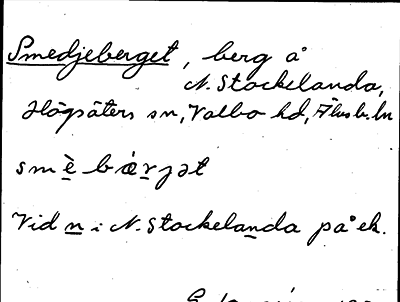 Smedjeberget, berg å
N. Stockelanda,
Högsäters sn, Valbo hd, Älvsb. ln
smè̱ bæ̀ṟjət
Vid n̲ i N. Stockelan̲da på ek.